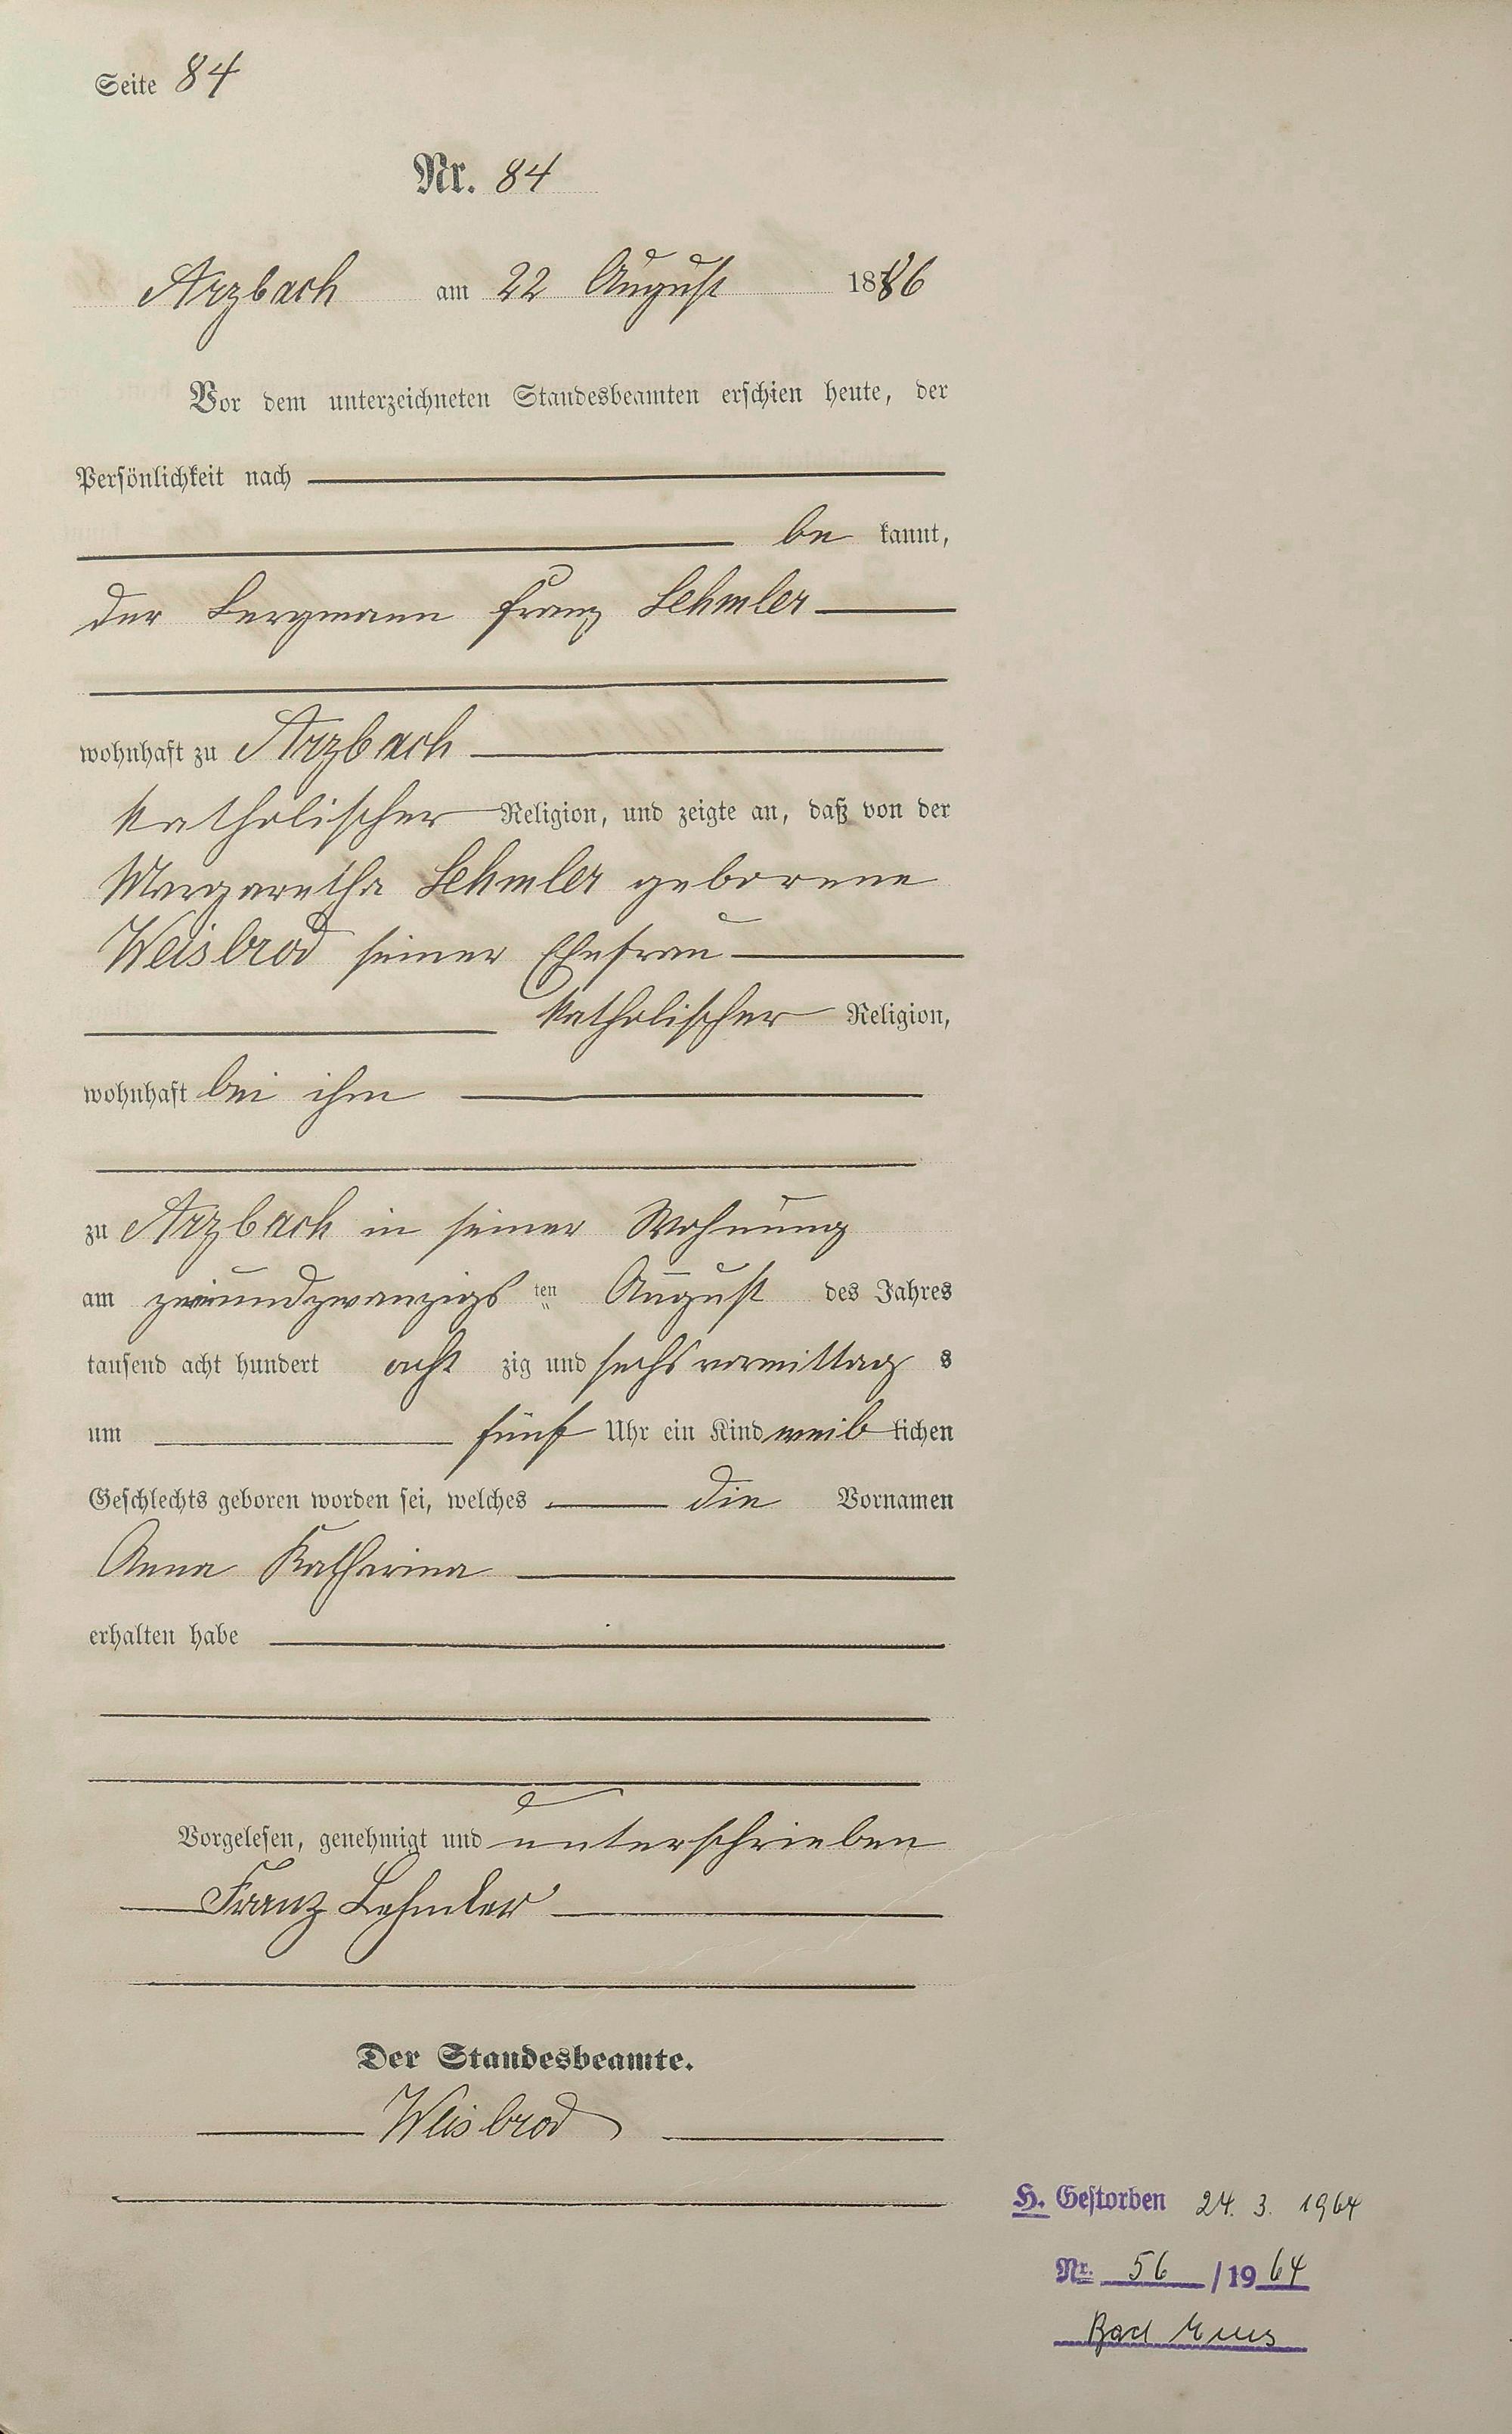 Seite 84
Nr. 84
Arzbach am 22 August 1886
Vor dem unterzeichneten Standesbeamten erschien heute, der
Persönlichkeit nach
be kannt,
der Bergmann Franz Lehmler
wohnhaft zu Arzbach
katholischer Religion, und zeigte an, daß von der
Margaretha Lehmler geborene
Weisbrod seiner Ehefrau
katholischer Religion,
wohnhaft bei ihm
zu Arzbach in seiner Wohnung
am zweiundzwanzigs ten August des Jahres
tausend acht hundert acht zig und sechs vormittag s
um fünf Uhr ein Kind weib lichen
Geschlechts geboren worden sei, welches die Vornamen
Anna Katharina
erhalten habe
Vorgelesen, genehmigt und unterschrieben
Franz Lehmler
Der Standesbeamte.
Weisbrod
H. Gestorben 24. 3. 1964
Nr. 56 / 19 64
Bad Ems